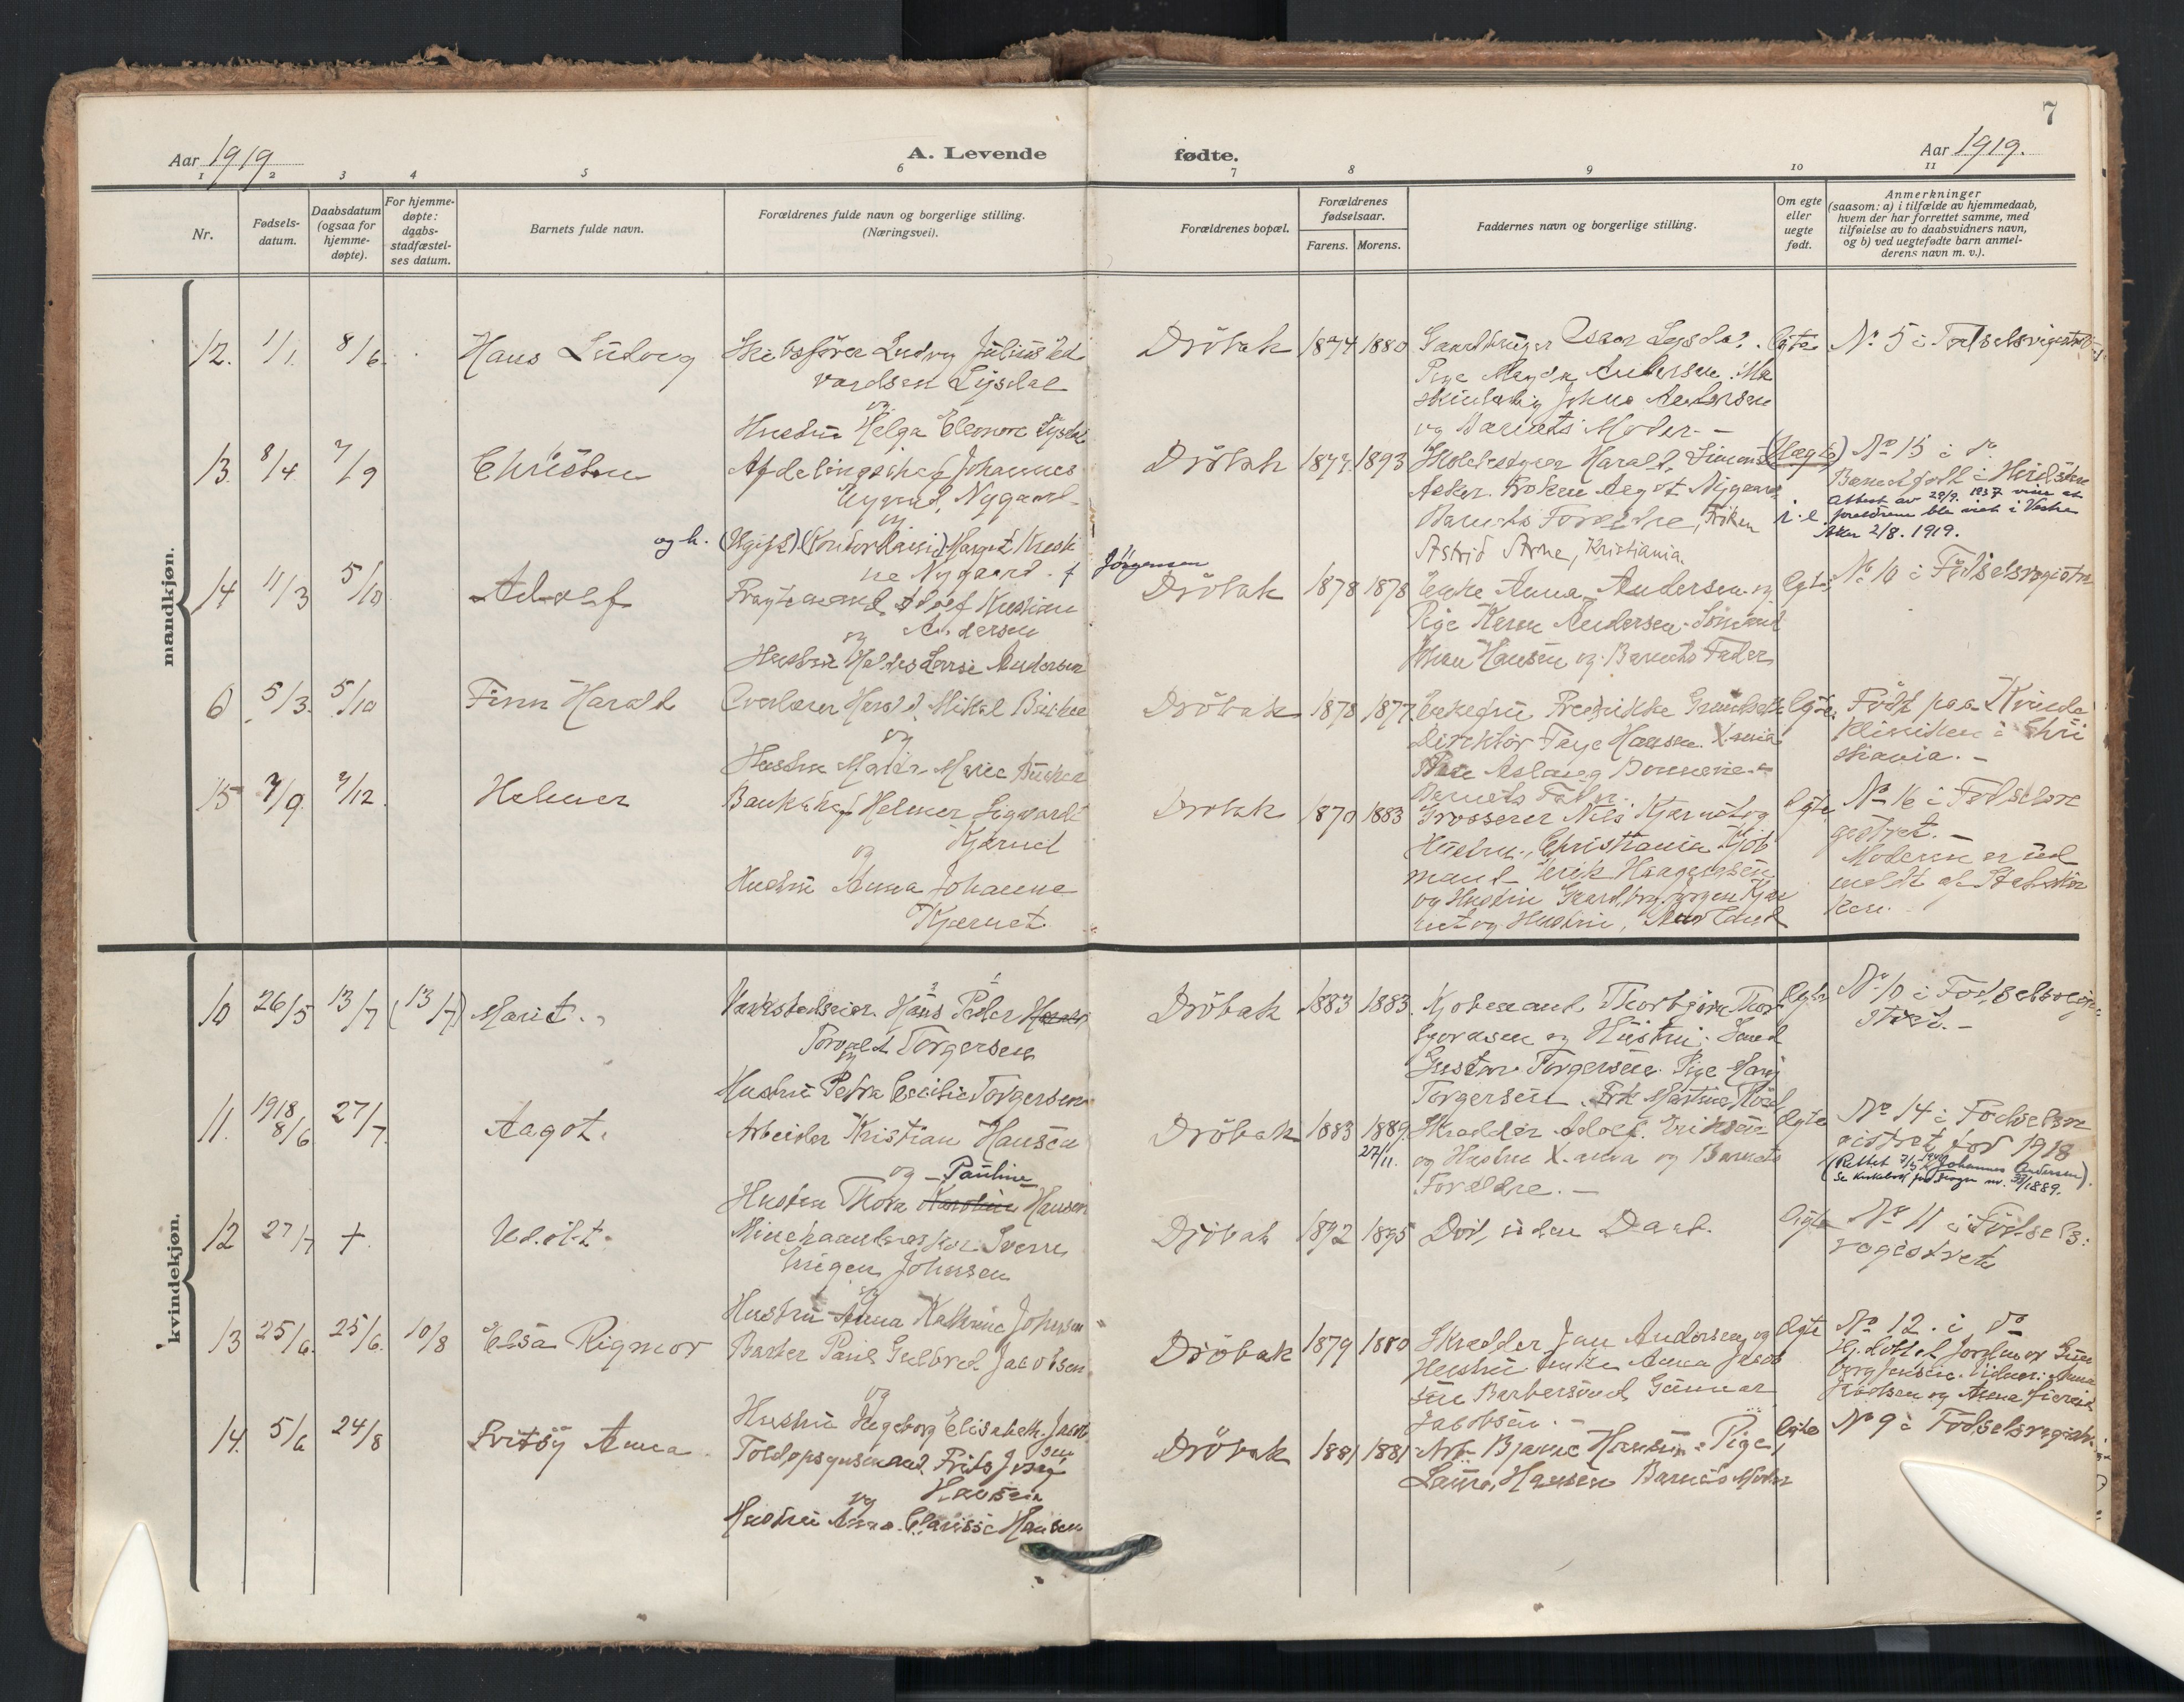 7
Aar 1919
A. Levende
fødte.
Aar 1919.
1 2 3 4 5 6 7 8 9 10 11
Nr.
Fødsels-
datum.
Daabsdatum
(ogsaa for
hjemme-
døpte).
For hjemme-
døpte:
daabs-
stadfæstel-
ses datum.
Barnets fulde navn.
Forældrenes fulde navn og borgerlige stilling.
(Næringsvei).
Forældrenes bopæl.
Forældrenes
fødselsaar.
Farens. Morens.
Faddernes navn og borgerlige stilling.
Om egte
eller
uegte
født.
Anmerkninger
(saasom: a) i tilfælde av hjemmedaab,
hvem der har forrettet samme, med
tilføielse av to daabsvidners navn,
og b) ved uegtefødte barn anmel-
derens navn m. v.).
mandkjøn.
12. 1/1. 8/6. Hans Ludvig
Skibsfører Ludvig Julius Ed
vardsen Lysdal
og
Hustru Helga Eleonore Lysdal
Dröbak 1874 1880
Oscar Lysdal.
Pige Magda Andersen. Ma
Johns Andersen
og Barnets Moder. -
Egte
No 5 i Fødselsregistret
13. 8/4. 7/9
Afdelingschef Johannes
Nygaard
og
og h. (Ugift) Margot Kristi
ne Nygaard. f Jörgensen
Dröbak 1893
Harald Simons
Asker. Frøken Aagot Nygaard
Barnets Forældre, Frøken
Astrid Arne, Kristiania.
(Uegte)
No 15 i do
Barnet født i
Attest av 29/9. 1937 viser at
foreldrene ble viet i Vestre
Aker 2/8. 1919.
14 11/3 5/10 Adolf
Adolf Kristian
Andersen
og
Hustru Andersen
Dröbak 1878 1878
Enke Anna Andersen og
Pige Karen Andersen. Sömand
Johan Hansen og Barnets Fader
Egte
No 10 i Fødselsregistret
6 5/3. 5/10 Finn Harald
Overlærer Harald Mikal
og
Hustru Marie
Dröbak 1878 1877
Enkefru Fredrikke
Direktör Hansen. X.ania
Frue Aslaug
Barnets Fader.
Egte.
Født paa Kvinde
klinikken i Chri
stiania. -
15 7/9. 7/12. Helmer
Bankchef Helmer Sigvard
Kjærnet
og
Hustru Anna Johanne
Kjærnet.
Dröbak 1870 1883
Grosserer Nils Kjærnet og
Hustru, Christiania Kjöb
mand Erik Haagensen
og Hustru Gaardbrug. Jørgen Kjær
net og Hustru,
Egte
No 16 i Fødselsre
gistret. -
Moderen er ud
meldt af Statskir
ken.
kvindekjøn.
10 26/5 13/7 (13/7) Marit.
Verkstedseier. Hans Peder
Torvald Torgersen
og
Hustru Petra Cecilie Torgersen
Dröbak 1883 1883.
Kjöbmand Thorbjörn Thor
og Hustru. Smed
Gustav Torgersen. Pige Marij
Torgersen. Frk Martine
Egte
No 10 i Fødselsregi
stret. -
11. 1918 8/6 27/7. Aagot.
Arbeider Kristian Hansen
og Pauline
Hustru Thora Karoline Hansen
Dröbak 1883 1889.
27/11.
Skrædder Adolf Eriksen
og Hustru X.ania og Barnets
Forældre. -
Egte
No 14 i Fødselsre
gistret for 1918
(Rettet Johannes Andersen).
Se kirkebok for Frogn nr. 38/1889.
12 27/7 + Udöbt.
Minehaandverker Sverre
Eugen Johnsen
og
Hustru Anna Kathrine Johnsen
Dröbak 1892 1895
Död, uden Daab.
Egte
No 11 i Fødsels:
registret
13 25/6. 25/6. 10/8 Elsa Rigmor
Barber Paul Gulbrand Jacobsen.
og
Hustru Ingeborg Elisabeth Jacob
sen
Dröbak 1879 1880
Skrædder Jan Andersen og
Hustru Enke Anna Jacob
sen Barbersvend Gunnar
Jacobsen. -
Egte
No 12. i do
Hj.döbt af Jordmor Gun
borg Jensen. Vidner: Anna
og Anna
14. 5/6 24/8 Fritsy Anna
Toldopsynsmand Frits Josef
Hansen
og
Hustru Anna Clarisse Hansen
Dröbak 1881 1881
Arb. Bjarne Hansen. Pige
Laura Hansen Barnets Moder
Egte
No 9 i Fødselsregistr.